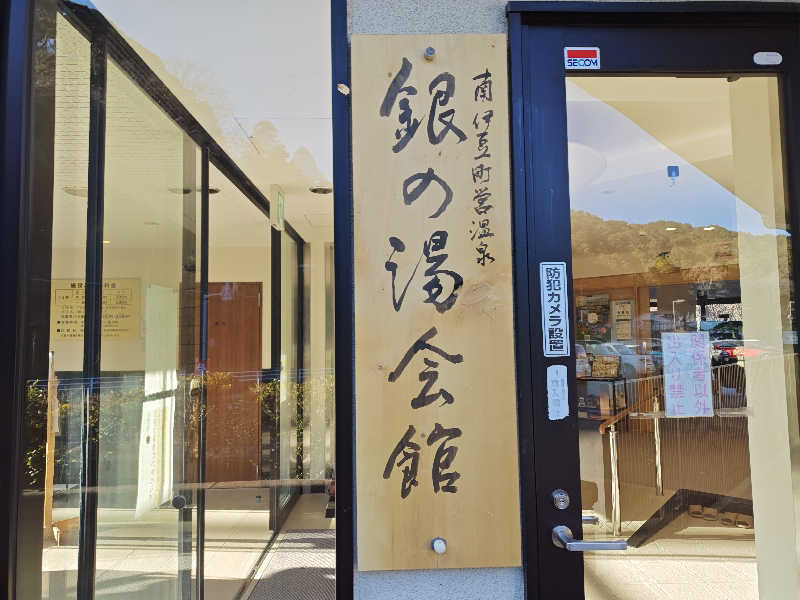 南伊豆町営温泉
銀の湯会館
SECOM
防犯カメラ設置
関係者以外
出入り禁止